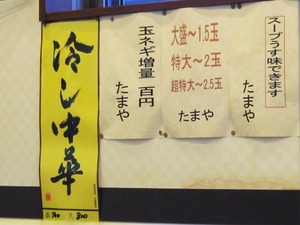 スープうす味できます
たまや
大盛〜1.5玉
特大〜2玉
超特大〜2.5玉
たまや
玉ネギ増量 百円
たまや
冷し中華
大 800